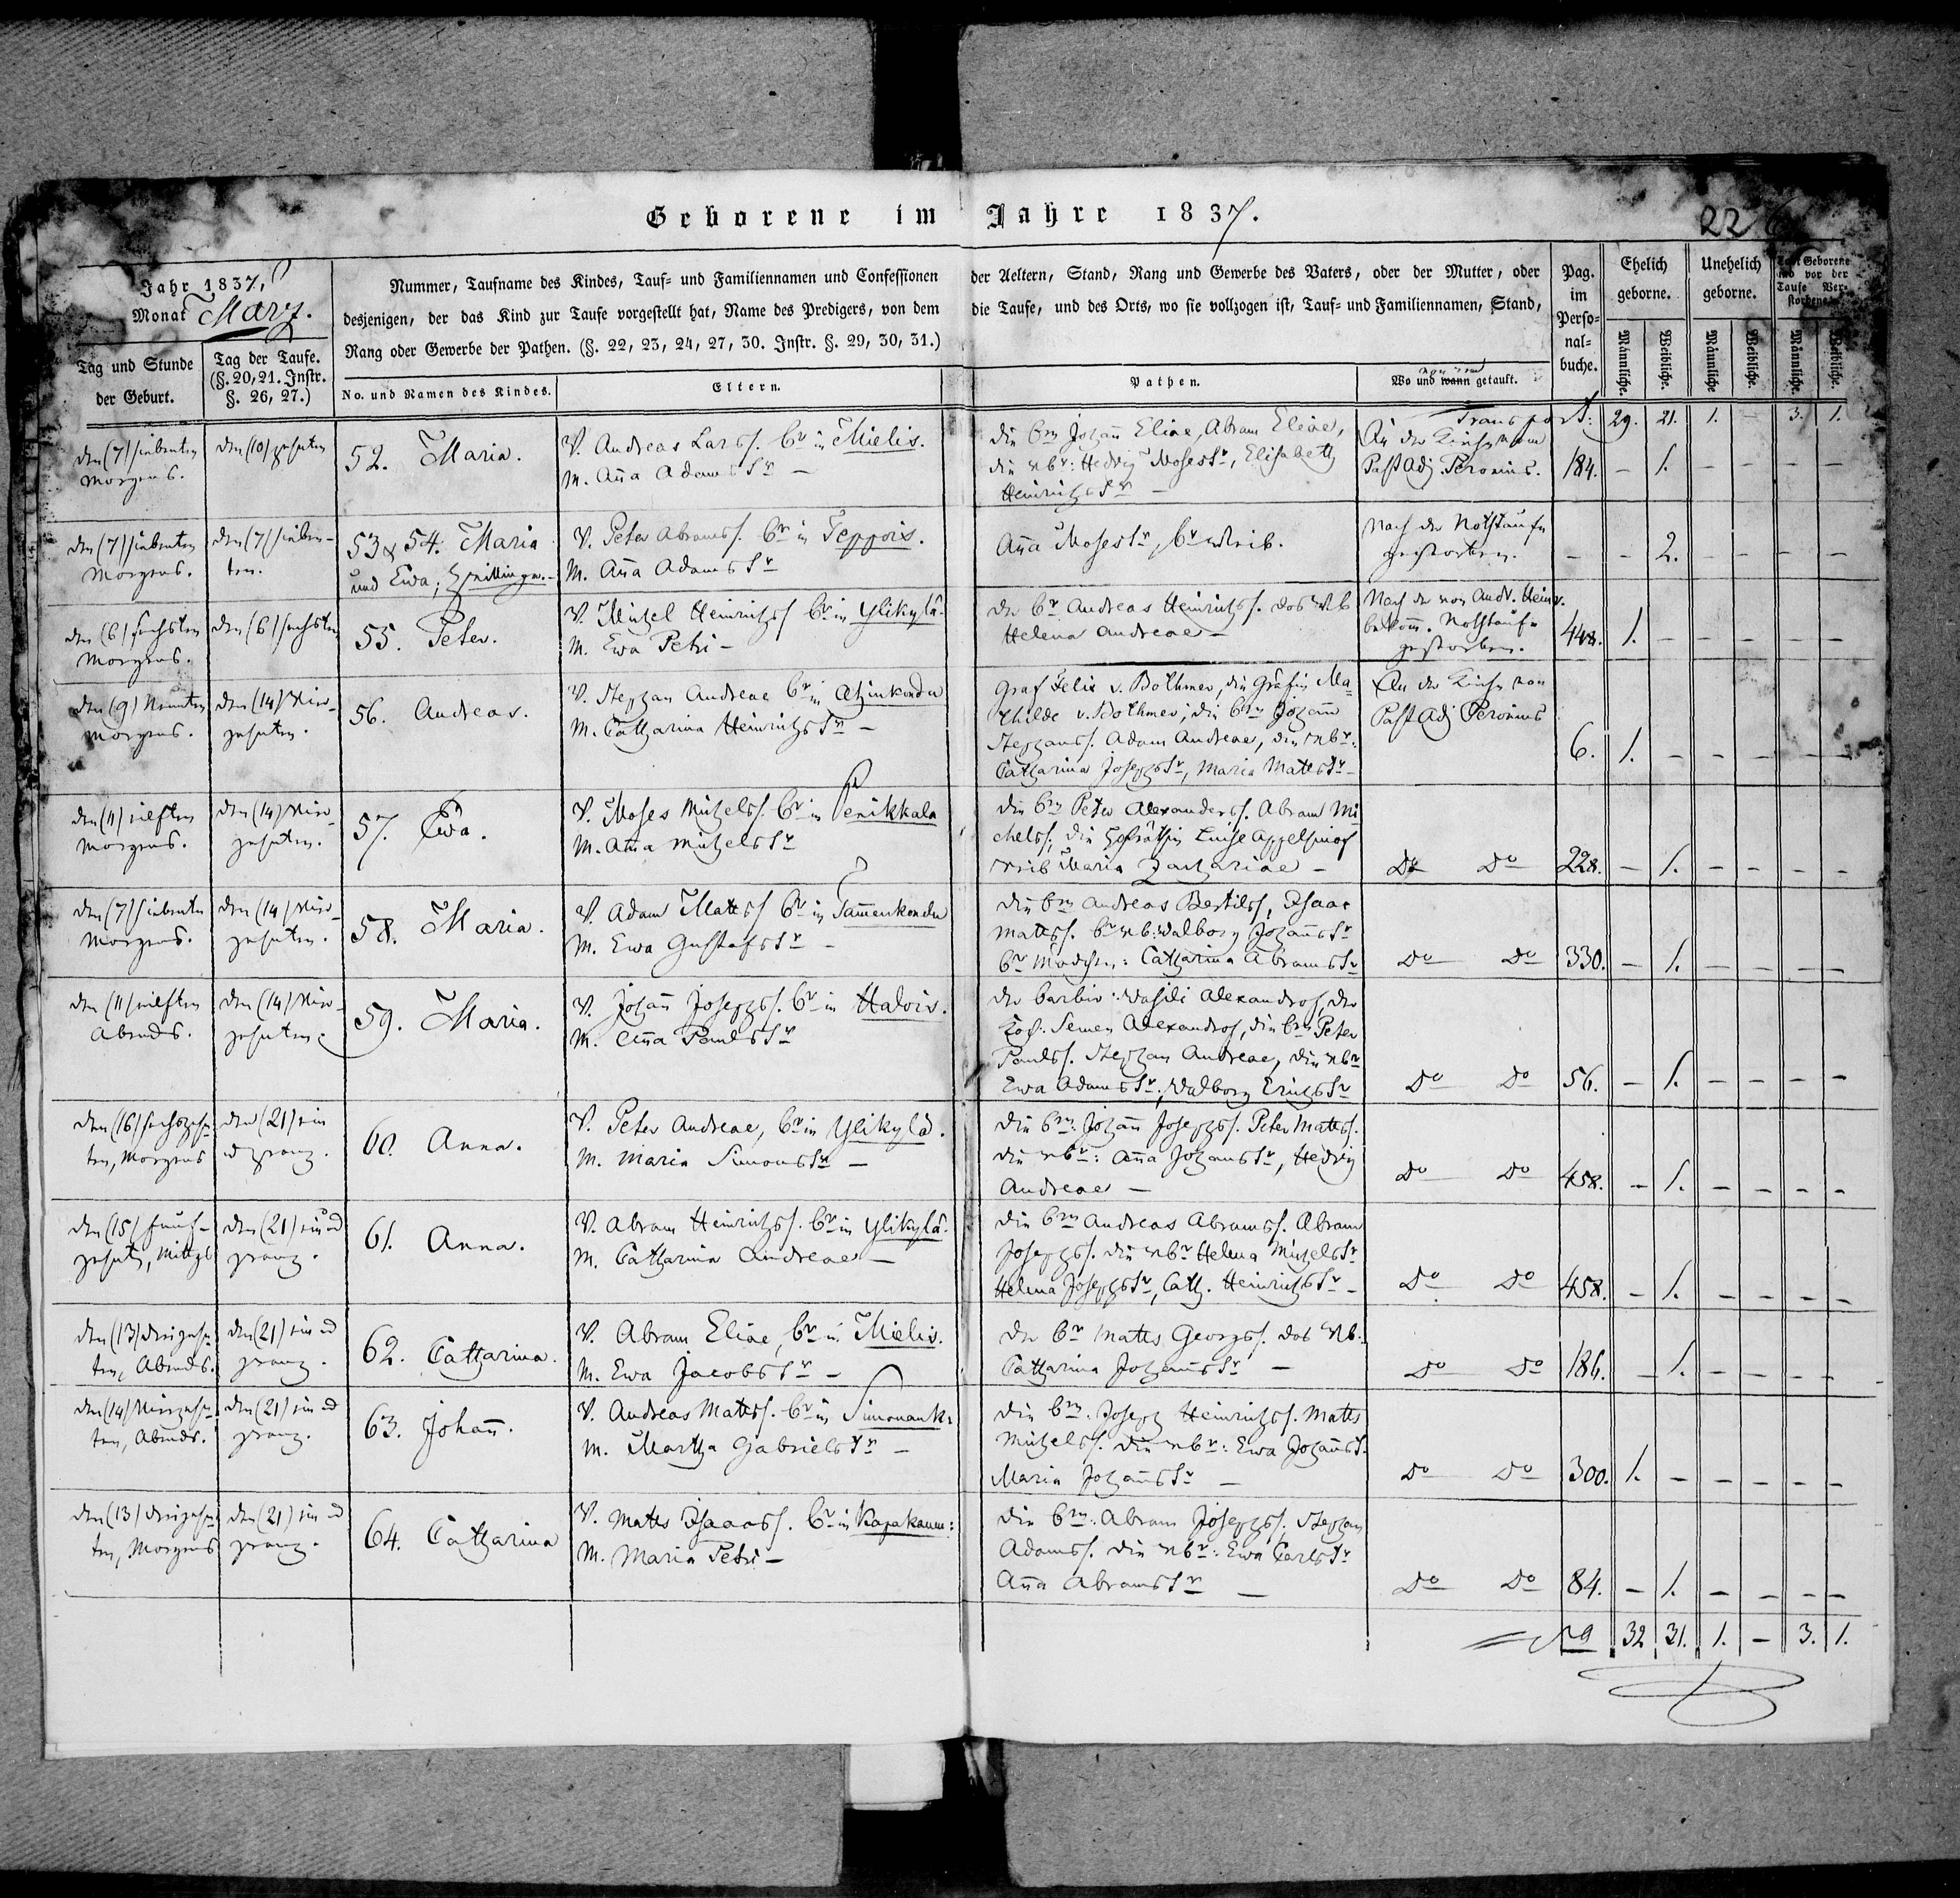 Geborene im Jahre 1837.
226
Jahr 1837,
Monat März.
Tag und Stunde
der Geburt.
Tag der Taufe.
(§. 20, 21. Instr.
§. 26, 27.)
Nummer, Taufname des Kindes, Tauf- und Familiennamen und Confessionen der Aeltern, Stand, Rang und Gewerbe des Vaters, oder der Mutter, oder
desjenigen, der das Kind zur Taufe vorgestellt hat, Name des Predigers, von dem die Taufe, und des Orts, wo sie vollzogen ist, Tauf- und Familiennamen, Stand,
Rang oder Gewerbe der Pathen. (§. 22, 23, 24, 27, 30. Instr. §. 29, 30, 31.)
No. und Namen des Kindes.
Eltern.
Pathen.
Wo und wann getauft.
Pag.
im
Perso-
nal-
buche.
Ehelich
geborne.
Unehelich
geborne.
Todt Geborene
und vor der
Taufe Ver-
storbene.
Männliche.
Weibliche.
Männliche
Weibliche.
Männliche.
Weibliche.
Transport: 29. 21. 1. — 3. 1.
den (7) siebenten
Morgens.
den (10) zehnten
52. Maria.
V. Andreas Larss. br in Mielis.
M. Anna Adams Tr —
die brn Johan Eliae, Abram Eliae,
die wbr: Hedvig Moses Tr, Elisabeth
Heinrichs Tr —
An der Kirche vom
Past Adj. Peronius.
184. — 1. — — — —
den (7) siebenten
Morgens.
den (7) sieben-
ten.
53 & 54. Maria
und Ewa; Zwillinge. —
V. Peter Abramss. br in Teppois.
M. Anna Adams Tr
Anna Moses Tr, br Weib.
Nach der Nothtaufe
gestorben.
— — 2. — — — —
den (6) sechsten
Morgens.
den (6) sechsten
55. Peter.
V. Michel Heinrichss br in Ylikylä.
M. Ewa Petri —
der br Andreas Heinrichss. das Wb
Helena Andreae —
Nach der von Andr. Heinr.
bekom. Nothtaufe
gestorben.
448. 1. — — — — —
den (9) Neunten
Morgens.
den (14) Vier-
zehnten.
56. Andreas.
V. Stephan Andreae br in
M. Catharina Heinrichs Tr —
Graf Felix v. Bothmer, die Gräfin Ma-
thilde v. Bothmer; die brn Johann
Stephanss. Adam Andreae, die wbr:
Catharina Josephs Tr, Maria Matts Tr —
An der Kirche von
Past Adj Peronius
6. 1. — — — — —
den (11) eilften
Morgens.
den (14) Vier-
zehnten.
57. Ewa.
V. Moses Michelss. br in Penikkala
M. Anna Michels Tr
die brn Peter Alexanderss. Abram Mi
chelss; die Hofräthin Luise
Weib Maria Zachariae —
Do Do
228. — 1. — — — —
den (7) siebenten
Morgens.
den (14) Vier-
zehnten.
58. Maria.
V. Adam Mattss br in Tammenkondu
M. Ewa Gustafs Tr —
die brn Andreas Bertilss, Isaac
Mattss. br wb: Walborg Johanns Tr
br Mädchen: Catharina Abrams Tr
Do Do
330. — 1. — — — —
den (11) eilften
Abends.
den (14) Vier-
zehnten.
59. Maria.
V. Johann Josephss. br in Halois.
M. Anna Pauls Tr
der barbir: Wasili Alexandrof, der
Semen Alexandrof, die brn Peter
Paulss. Stephan Andreae, die wbr
Ewa Adams Tr; Walborg Erichs Tr
Do Do
56. — 1. — — — —
den (16) sechszehn-
ten, Morgens
den (21) ein
u zwanz.
60. Anna.
V. Peter Andreae, br in Ylikylä.
M. Maria Simons Tr —
die brn: Johann Josephss. Peter Mattss.
die wbr: Anna Johanns Tr, Hedvig
Andreae —
Do Do
458. — 1. — — — —
den (15) funf-
zehnt, Mittgs
den (21) ein ud
zwanz.
61. Anna.
V. Abram Heinrichss. br in Ylikylä.
M. Catharina Andreae —
die brn Andreas Abramss. Abram
Josephss. die wbr Helena Michels Tr
Helena Josephs Tr, Cath. Heinrichs Tr —
Do Do
458. — 1. — — — —
den (13) dreizehn-
ten, Abends.
den (21) ein ud
zwanz.
62. Catharina.
V. Abram Eliae, br in Mielis.
M. Ewa Jacobs Tr —
der br Matts Georgss. das Wb.
Catharina Johanns Tr —
Do Do
186. — 1. — — — —
den (14) Vierzehn-
ten, Abends.
den (21) ein ud
zwanz.
63. Johann.
V. Andreas Mattss. br in Simonank:
M. Martha Gabriels Tr —
die brn: Joseph Heinrichss. Matts
Michelss. die wbr: Ewa Johanns T.
Maria Johanns Tr —
Do Do
300. 1. — — — — —
den (13) dreizehn-
ten, Morgens
den (21) ein ud
zwanz.
64. Catharina
V. Matts Isaacss. br in Kapakanm:
M. Maria Petri —
die brn: Abram Josephss, Stephan
Adamss. die wbr: Ewa Carls Tr
Anna Abrams Tr —
Do Do
84. — 1. — — — —
32 31. 1. — 3. 1.